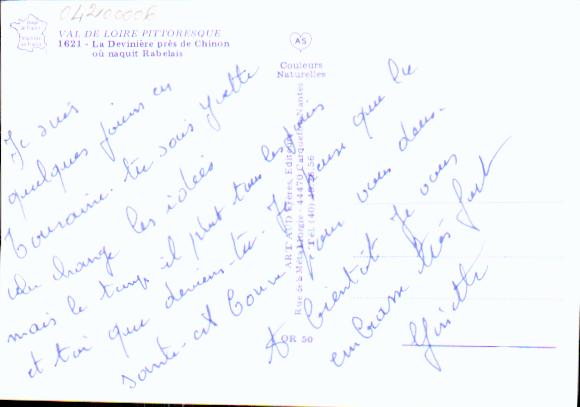 042100006
VAL DE LOIRE PITTORESQUE
1621 - La Devinière près de Chinon
où naquit Rabelais
AS
Couleurs
Naturelles
ARTAUD Frères, Editeurs
Rue de la Métallurgie - 44470 Carquefou-Nantes
Tél. (40)
OR 50
Je suis
quelques jours en
Touraine. tu sais Yvette
change les idées
mais le temps il pleut tous les jours
et toi que deviens-tu. Je pense que la
santé est bonne pour vous deux.
A bientôt Je vous
embrasse très fort
Ginette